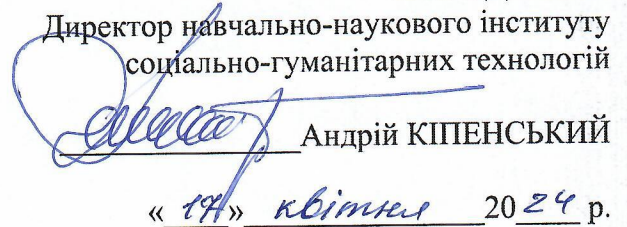 Директор навчально-наукового інституту
соціально-гуманітарних технологій
Андрій КІПЕНСЬКИЙ
« 17 » квітня 20 24 р.